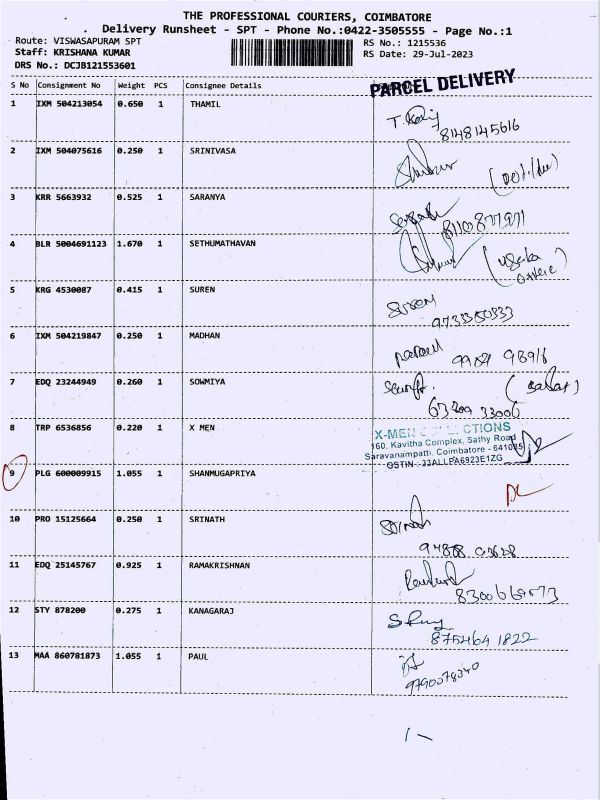 THE PROFESSIONAL COURIERS, COIMBATORE
. Delivery Runsheet - SPT - Phone No.:0422-3505555 - Page No.:1
Route: VISWASAPURAM SPT
Staff: KRISHANA KUMAR
DRS No.: DCJB121553601
RS No.: 1215536
RS Date: 29-Jul-2023
S No Consignment No Weight PCS Consignee Details
PARCEL DELIVERY
1 IXM 504213054 0.650 1 THAMIL
8148145616
2 IXM 504075616 0.250 1 SRINIVASA
3 KRR 5663932 0.525 1 SARANYA
4 BLR 5004691123 1.670 1 SETHUMATHAVAN
5 KRG 4530087 0.415 1 SUREN
9733350333
6 IXM 504219847 0.250 1 MADHAN
7 EDQ 23244949 0.260 1 SOWMIYA
8 TRP 6536856 0.220 1 X MEN
X-MEN CTIONS
160, Kavitha Complex, Sathy Road
Saravanampatti, Coimbatore - 641035
GSTIN : 33ALLPA6923E1ZG
9 PLG 600009915 1.055 1 SHANMUGAPRIYA
10 PRO 15125664 0.250 1 SRINATH
11 EDQ 25145767 0.925 1 RAMAKRISHNAN
12 STY 878200 0.275 1 KANAGARAJ
8754641822
13 MAA 860781873 1.055 1 PAUL
9790078340